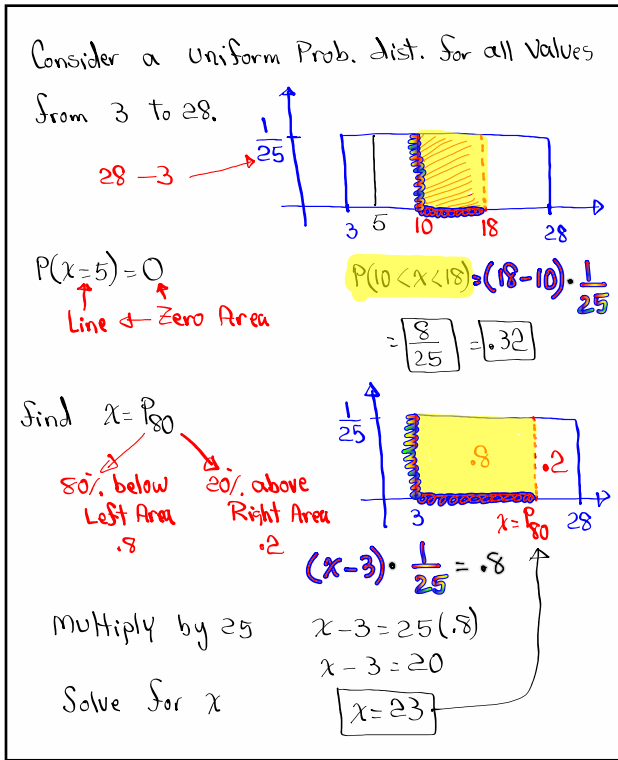 Consider a Uniform Prob. dist. for all values
from 3 to 28.
28 - 3
1/25
3 5 10 18 28
P(x=5) = 0
Line ← Zero Area
P(10 < x < 18) = (18-10) · 1/25
= 8/25 = .32
find x = P80
80% below
Left Area
.8
20% above
Right Area
.2
1/25
.8 .2
3 x = P80 28
(x-3) · 1/25 = .8
Multiply by 25 x - 3 = 25(.8)
x - 3 = 20
Solve for x x = 23